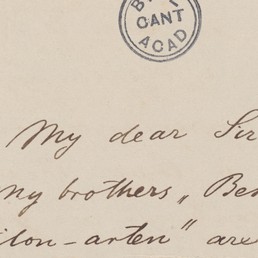 GANT
ACAD
My dear Sir
my brothers „Be
ilon-arten" are